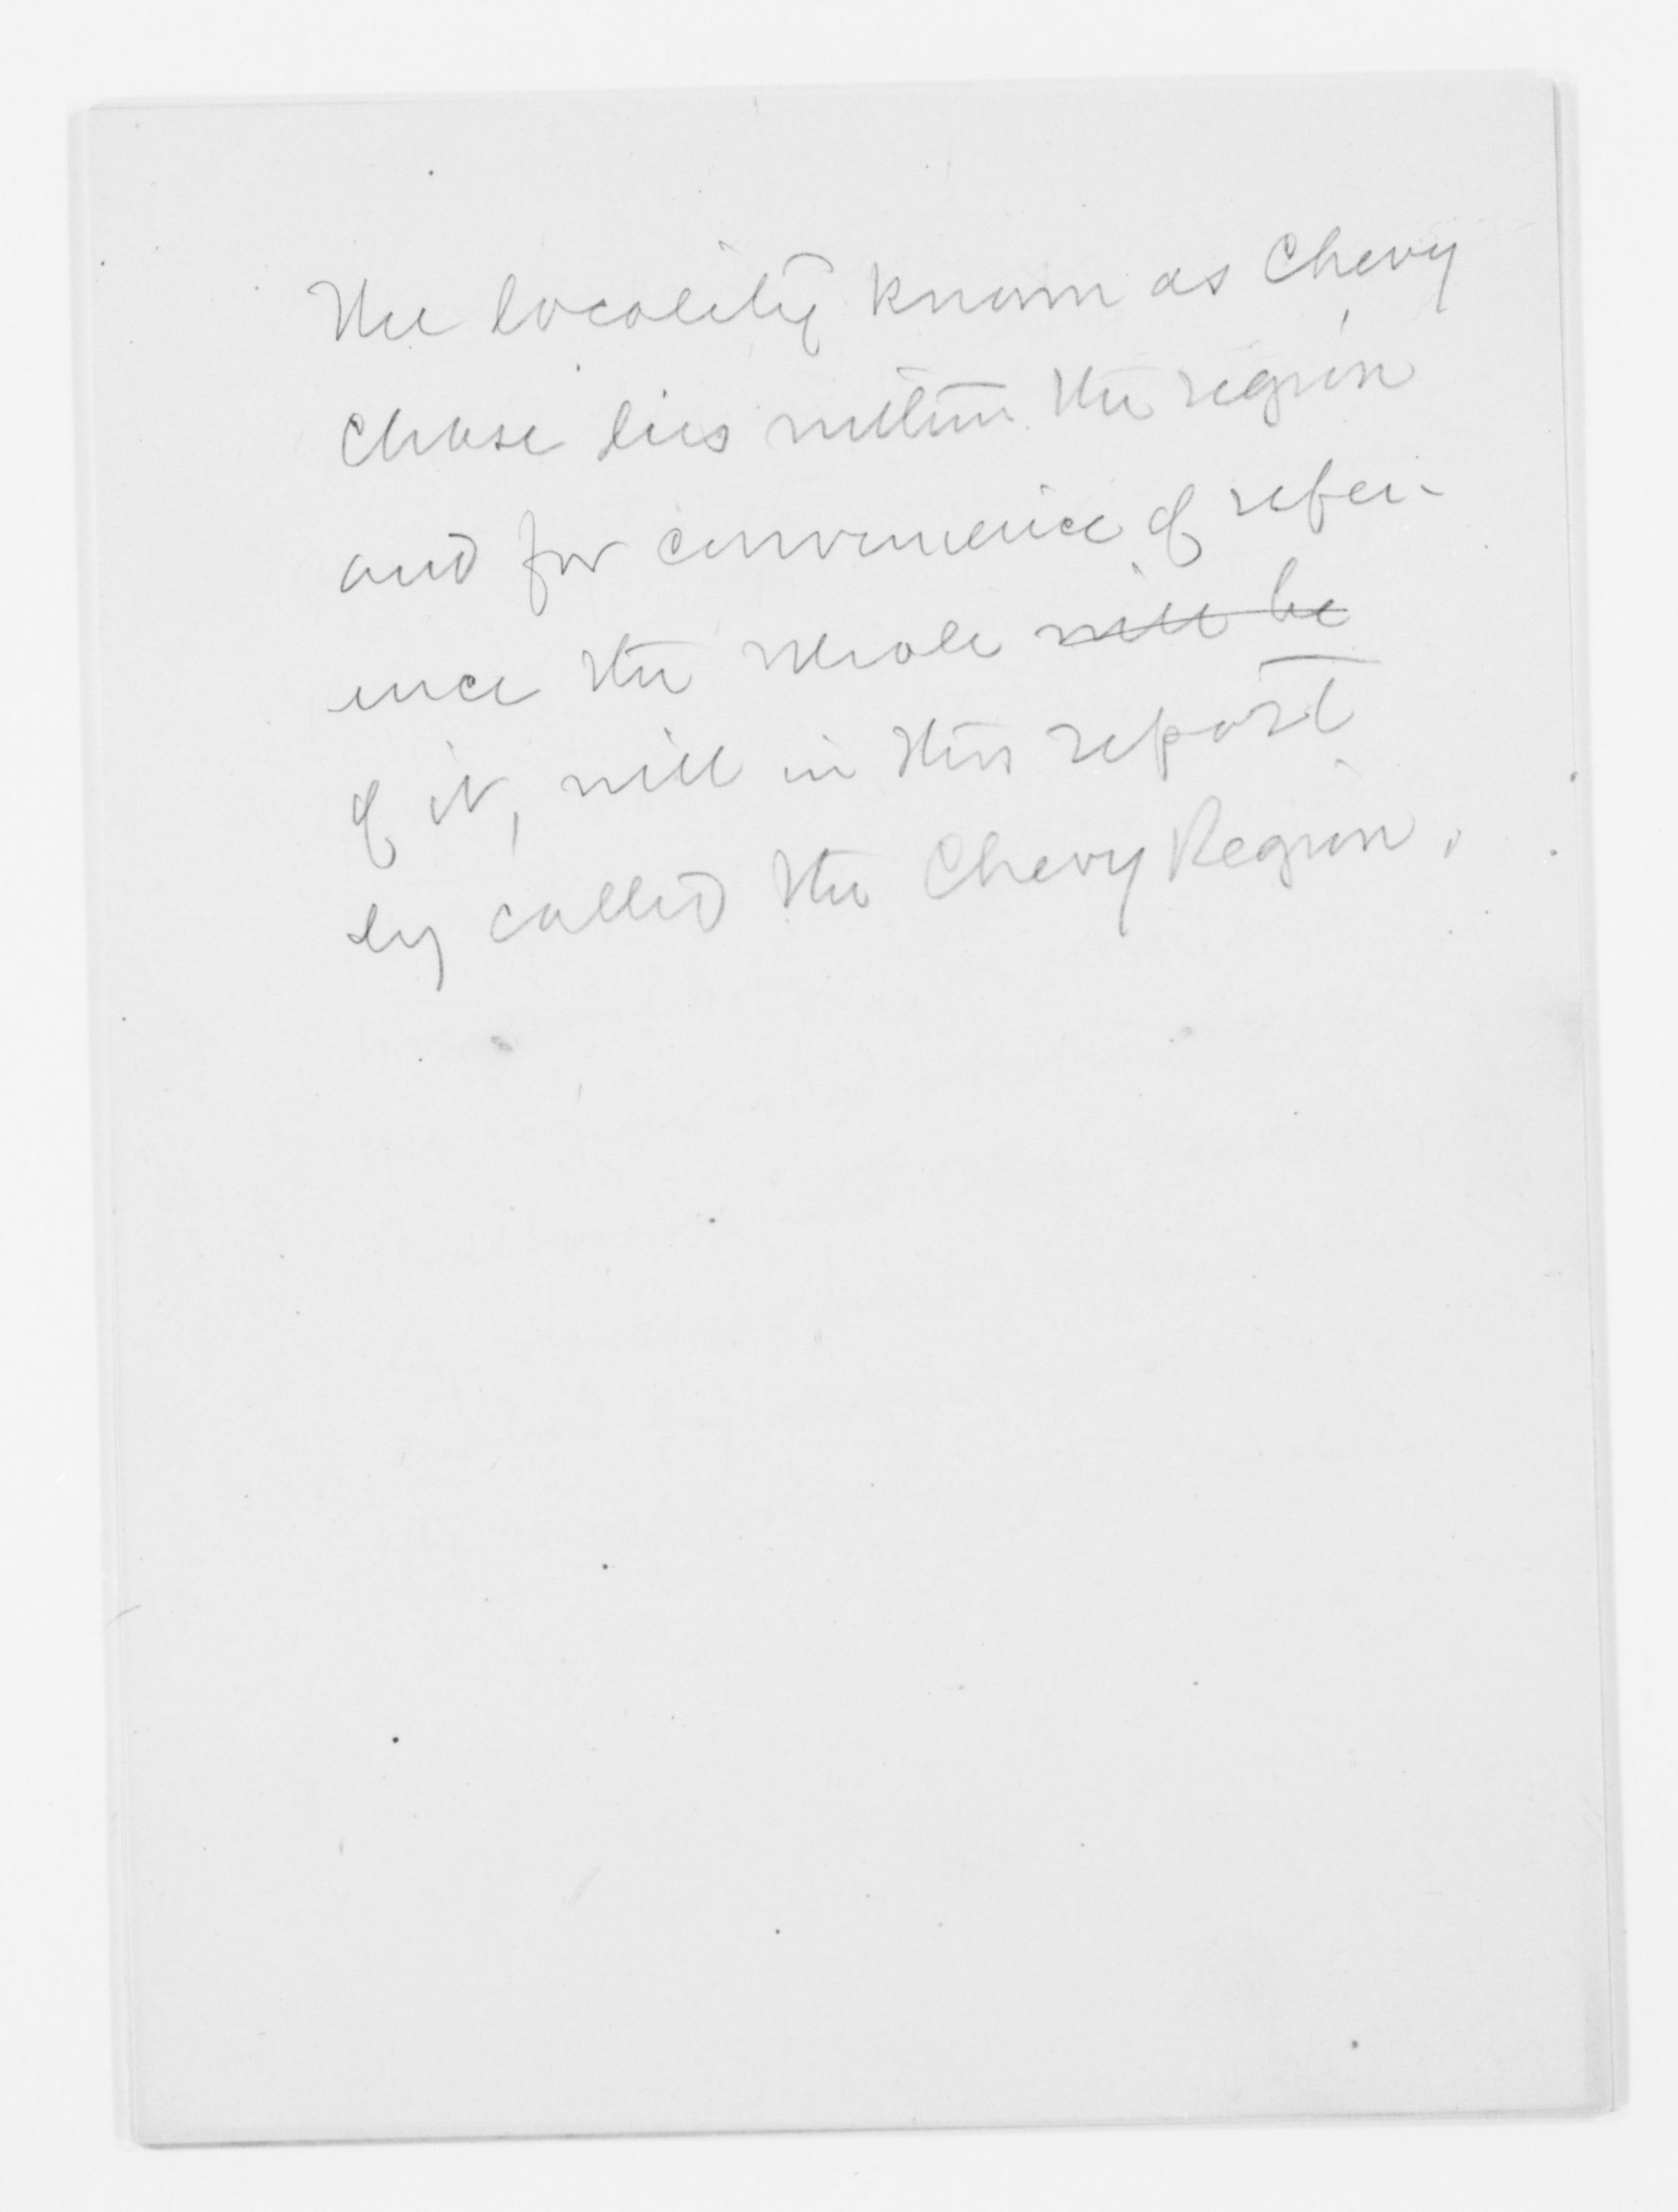 The locality known as Chevy
Chase lies within the region
and for convenience of refer-
ence the whole ~~will be~~
of it, will in this report
by called the Chevy Region.